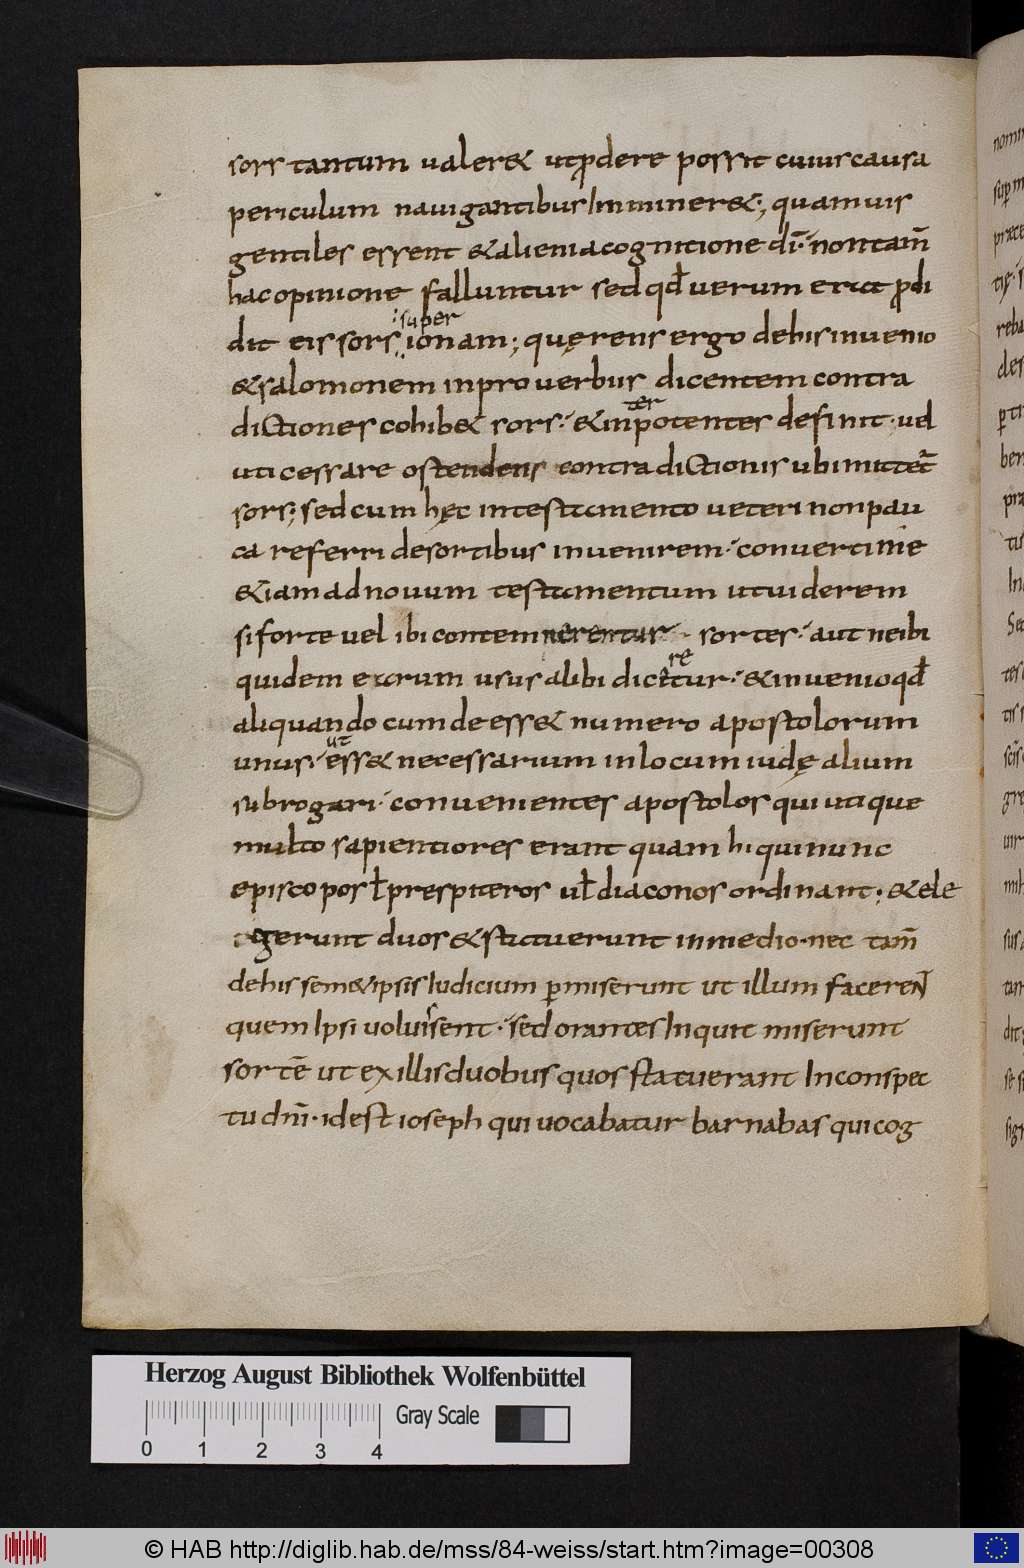 sors tantum ualer& ut ꝓdere possit cuius causa
periculum nauigantibus Imminer&; quamuis
gentiles essent & alieni a cognitione dī· non tam̄
hac opinione falluntur sed qđ uerum erat ꝓdi
dit eis sors super ionam; quęrens ergo de his inuenio
& salomonem in prouerbiis dicentem contra
dictiones cohib& sors· & inter potentes definit· uel
uti cessare ostendens contradictionis ubi mittet̄
sors; sed cum hęc in testamento ueteri non pau
ca referri de sortibus inuenirem· conuerti me
& iam ad nouum testamentum ut uiderem
si forte uel ibi contemnerentur sortes· aut ne ibi
quidem earum usus alibi diceretur· & inuenio qđ
aliquando cum deess& numero apostolorum
unus· ut ess& necessarium in locum iudę alium
subrogari· conuenientes apostolos qui utique
multo sapientiores erant quam hi qui nunc
episcopos ł prespiteros uł diaconos ordinant; & ele
gerunt duos & statuerunt in medio· nec tam̄
de his sem& ipsis Iudicium ꝑmiserunt ut illum faceren̄
quem Ipsi uoluissent· sed orantes Inquit miserunt
sortē ut ex illis duobus quos statuerant In conspec
tu dn̄i· id est ioseph qui uocabatur barnabas qui cog
Herzog August Bibliothek Wolfenbüttel
Gray Scale
0 1 2 3 4
© HAB http://diglib.hab.de/mss/84-weiss/start.htm?image=00308